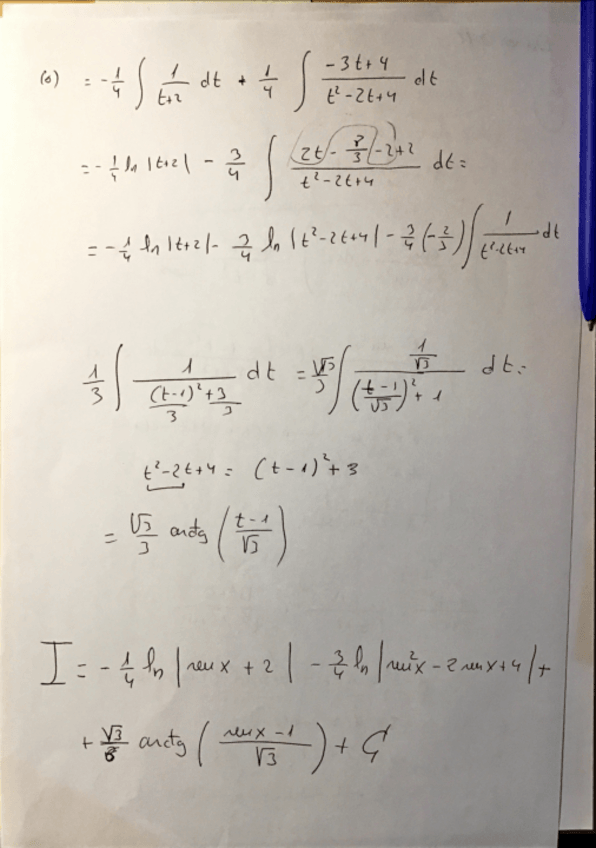 (o) = -1/4 ∫ 1/(t+2) dt + 1/4 ∫ (-3t+4)/(t²-2t+4) dt
= -1/4 ln |t+2| - 3/4 ∫ (2t - 8/3 - 2 + 2)/(t²-2t+4) dt =
= -1/4 ln |t+2| - 3/4 ln |t²-2t+4| - 3/4 (-2/3) ∫ 1/(t²-2t+4) dt
1/3 ∫ 1/((t-1)²/3 + 3/3) dt = √3/3 ∫ (1/√3)/(((t-1)/√3)² + 1) dt =
t²-2t+4 = (t-1)² + 3
= √3/3 arctg ((t-1)/√3)
I = -1/4 ln |sen x + 2| - 3/4 ln |sen²x - 2 sen x + 4| +
+ √3/6 arctg ((sen x - 1)/√3) + C